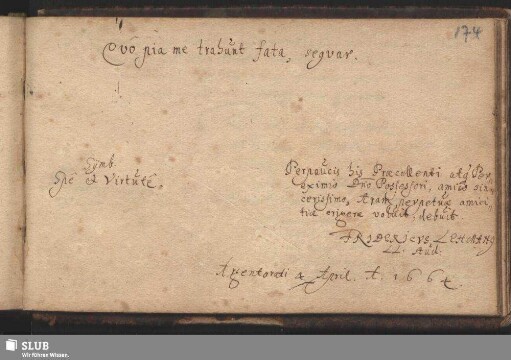 174
Qvo pia me trahunt fata, seqvar.
Symb.
Spe et Virtute.
Perpaucis his Præcellenti atq Per
eximio Dno Possessori, amico sin
cerissimo, Aram perpetuæ amici
tiæ erigere voluit, debuit
FRIDERICVS LEHMANN
LL. Aud.
Argentorati a April. A. 1664.
SLUB
Wir führen Wissen.